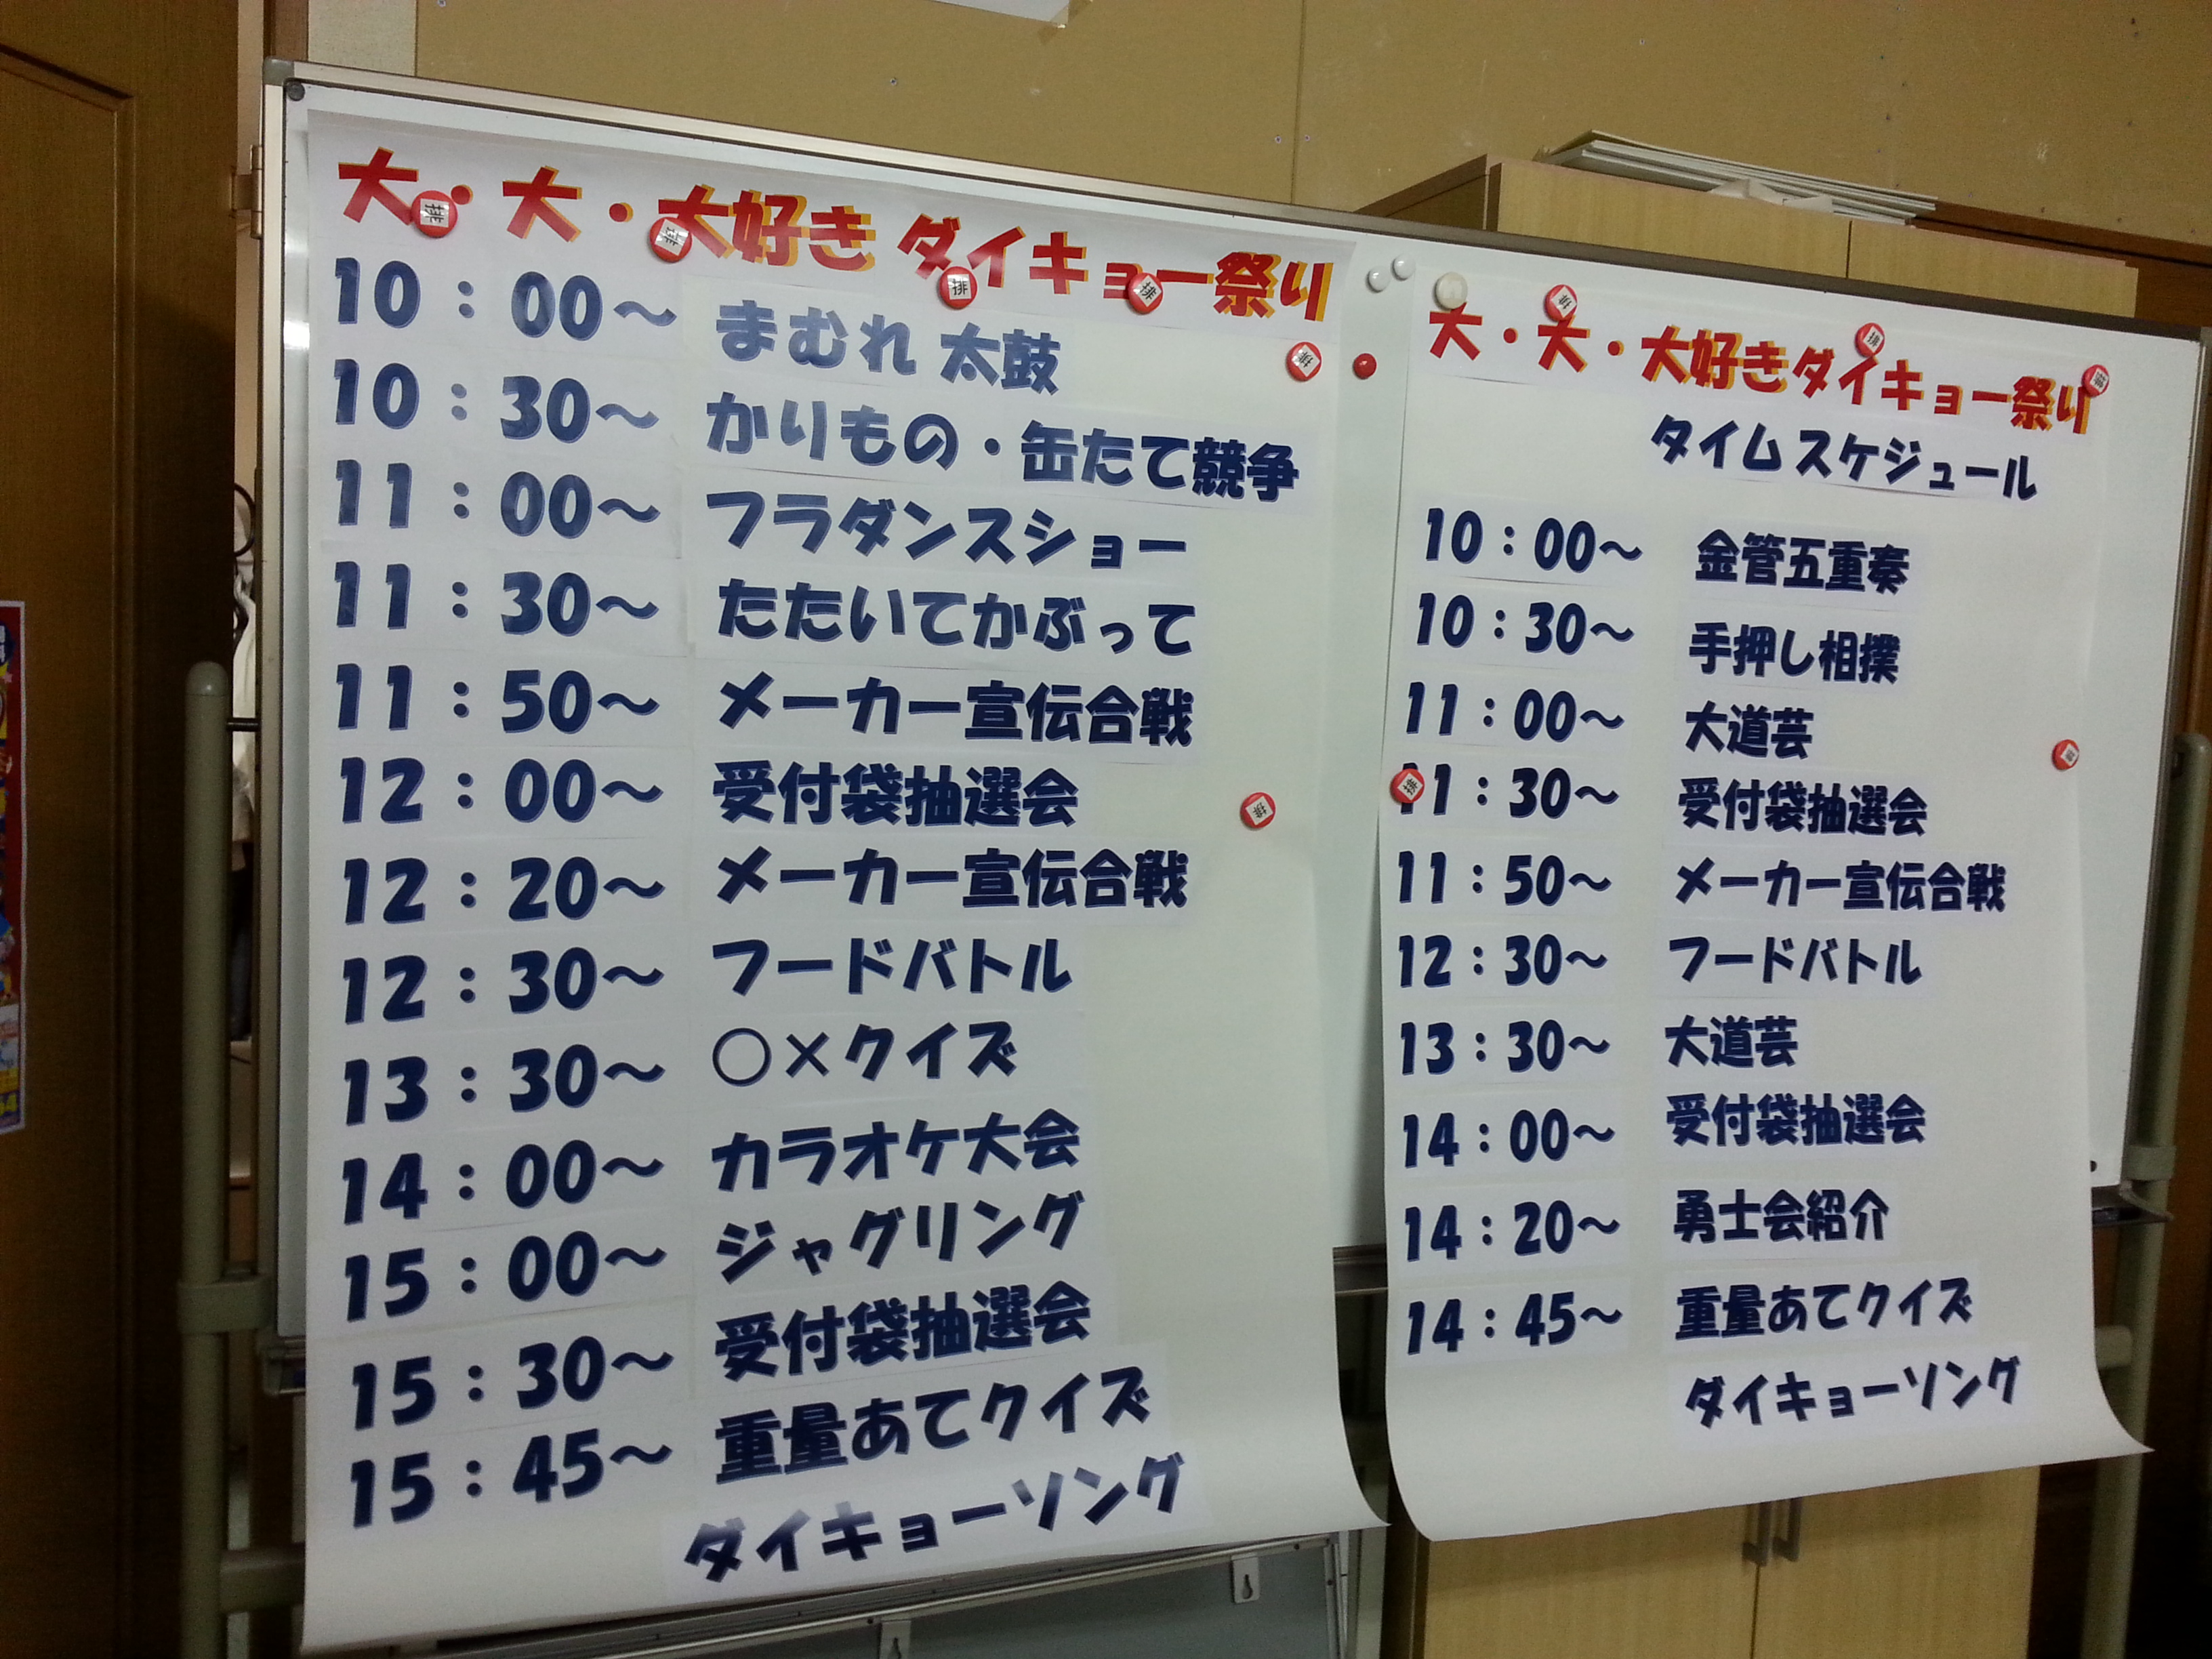 大・大・大好き ダイキョー祭り
10：00～ まむれ 太鼓
10：30～ かりもの・缶たて競争
11：00～ フラダンスショー
11：30～ たたいてかぶって
11：50～ メーカー宣伝合戦
12：00～ 受付袋抽選会
12：20～ メーカー宣伝合戦
12：30～ フードバトル
13：30～ ○×クイズ
14：00～ カラオケ大会
15：00～ ジャグリング
15：30～ 受付袋抽選会
15：45～ 重量あてクイズ
ダイキョーソング
大・大・大好きダイキョー祭り
タイムスケジュール
10：00～ 金管五重奏
10：30～ 手押し相撲
11：00～ 大道芸
11：30～ 受付袋抽選会
11：50～ メーカー宣伝合戦
12：30～ フードバトル
13：30～ 大道芸
14：00～ 受付袋抽選会
14：20～ 勇士会紹介
14：45～ 重量あてクイズ
ダイキョーソング